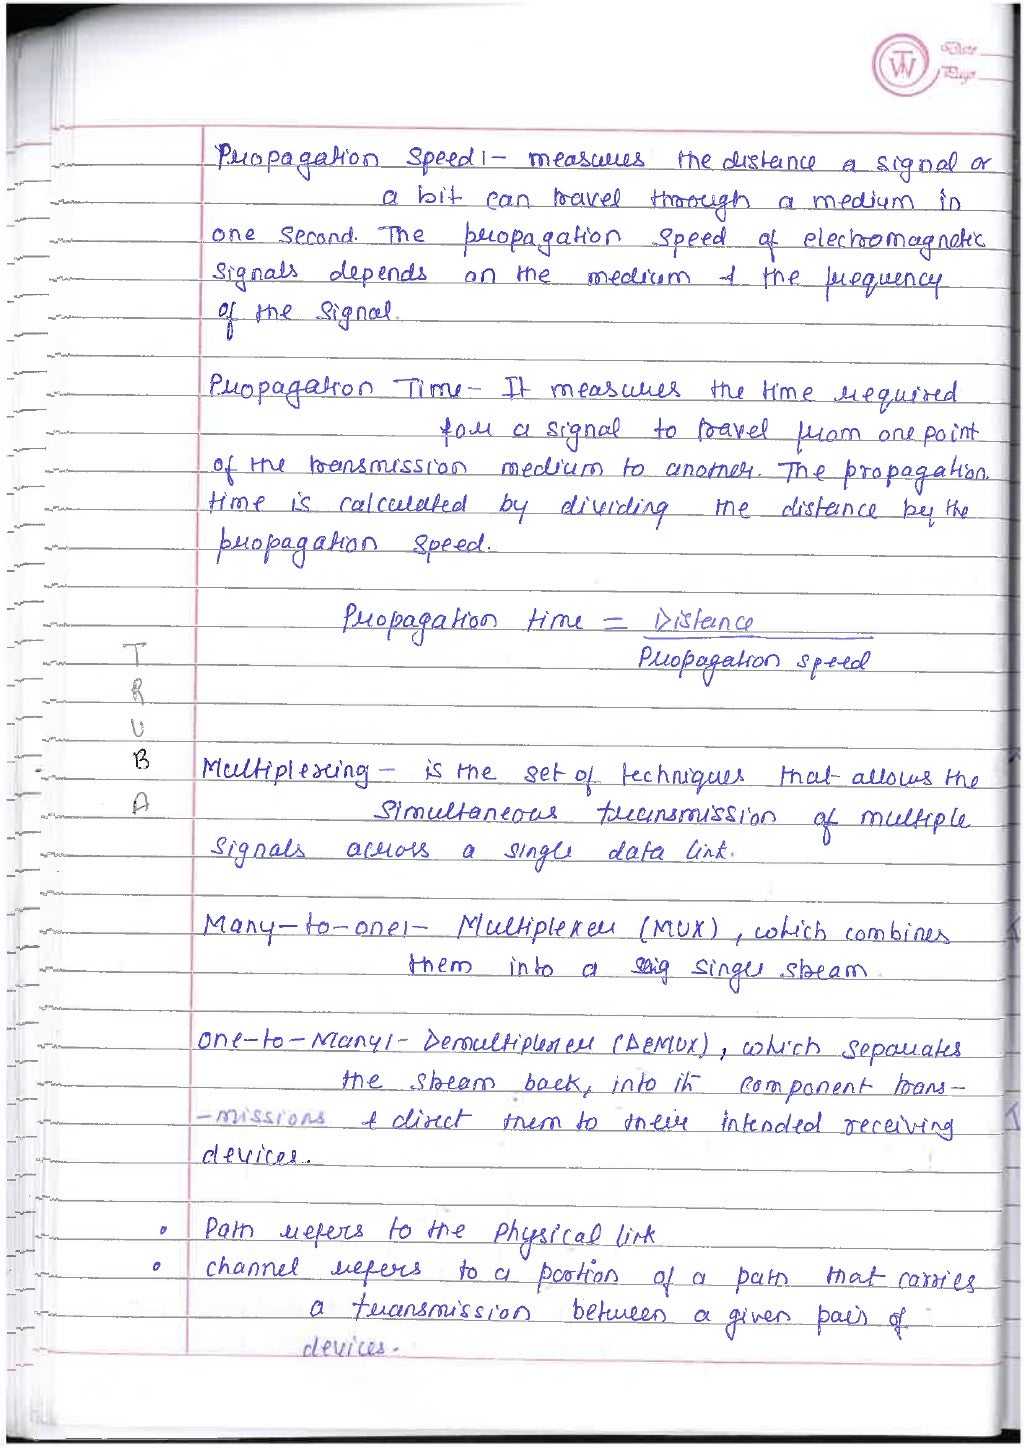 Date
Page
Propagation Speed:- measures the distance a signal or
a bit can travel through a medium in
one second. The propagation speed of electromagnetic
signals depends on the medium & the frequency
of the signal.
Propagation Time- It measures the time required
for a signal to travel from one point
of the transmission medium to another. The propagation
time is calculated by dividing the distance by the
propagation speed.
Propagation time = Distance
Propagation speed
T
R
U
B
A
Multiplexing - is the set of techniques that allows the
simultaneous transmission of multiple
signals across a single data link.
Many-to-one:- Multiplexer (MUX), which combines
them into a single stream.
One-to-Many:- Demultiplexer (DEMUX), which separates
the stream back, into its component trans-
-missions & direct them to their intended receiving
devices.
• Path refers to the Physical link
• channel refers to a portion of a path that carries
a transmission between a given pair of
devices.